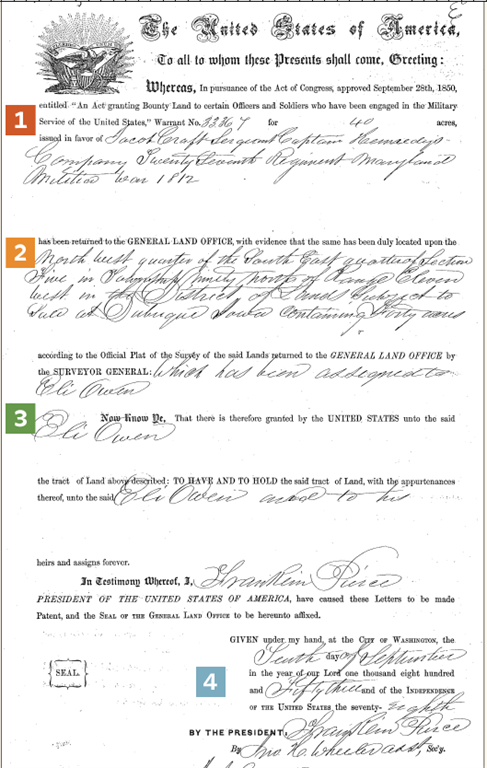 The United States of America,
To all to whom these Presents shall come, Greeting:
Whereas, In pursuance of the Act of Congress, approved September 28th, 1850,
entitled "An Act granting Bounty Land to certain Officers and Soldiers who have been engaged in the Military
1
Service of the United States," Warrant No. 33267 for 40 acres,
issued in favor of Jacob Craft Sergeant Captain
Company Twenty Seventh Regiment Maryland
Militia War 1812
has been returned to the GENERAL LAND OFFICE, with evidence that the same has been duly located upon the
2
North West quarter of the South East quarter of Section
Five in Township Ninety North of Range Eleven
West in the District of Lands Subject to
Sale at Dubuque Iowa Containing Forty acres
according to the Official Plat of the Survey of the said Lands returned to the GENERAL LAND OFFICE by
the SURVEYOR GENERAL: Which has been assigned to
Eli Owen
3
Now Know Ye, That there is therefore granted by the UNITED STATES unto the said
Eli Owen
the tract of Land above described: TO HAVE AND TO HOLD the said tract of Land, with the appurtenances
thereof, unto the said Eli Owen and to his
heirs and assigns forever.
In Testimony Whereof, I, Franklin Pierce
PRESIDENT OF THE UNITED STATES OF AMERICA, have caused these Letters to be made
Patent, and the SEAL OF THE GENERAL LAND OFFICE to be hereunto affixed.
GIVEN under my hand, at the CITY OF WASHINGTON, the
Tenth day of September
SEAL.
4
in the year of our Lord one thousand eight hundred
and Fifty three and of the INDEPENDENCE
OF THE UNITED STATES the seventy-eighth
BY THE PRESIDENT: Franklin Pierce
By Jno H. Wheeler asst. Sec'y.